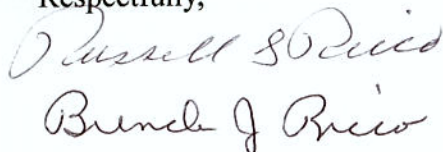 Respectfully,
Russell S Rico
Brenda J Rico